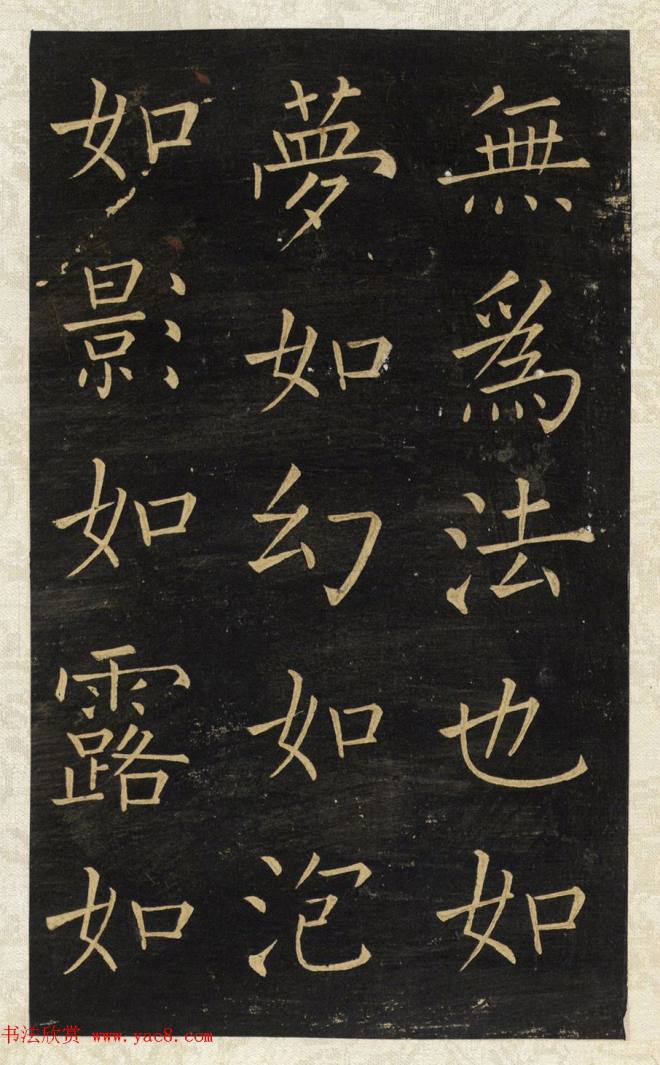 無爲法也如
夢如幻如泡
如影如露如
书法欣赏 www.yac8.com